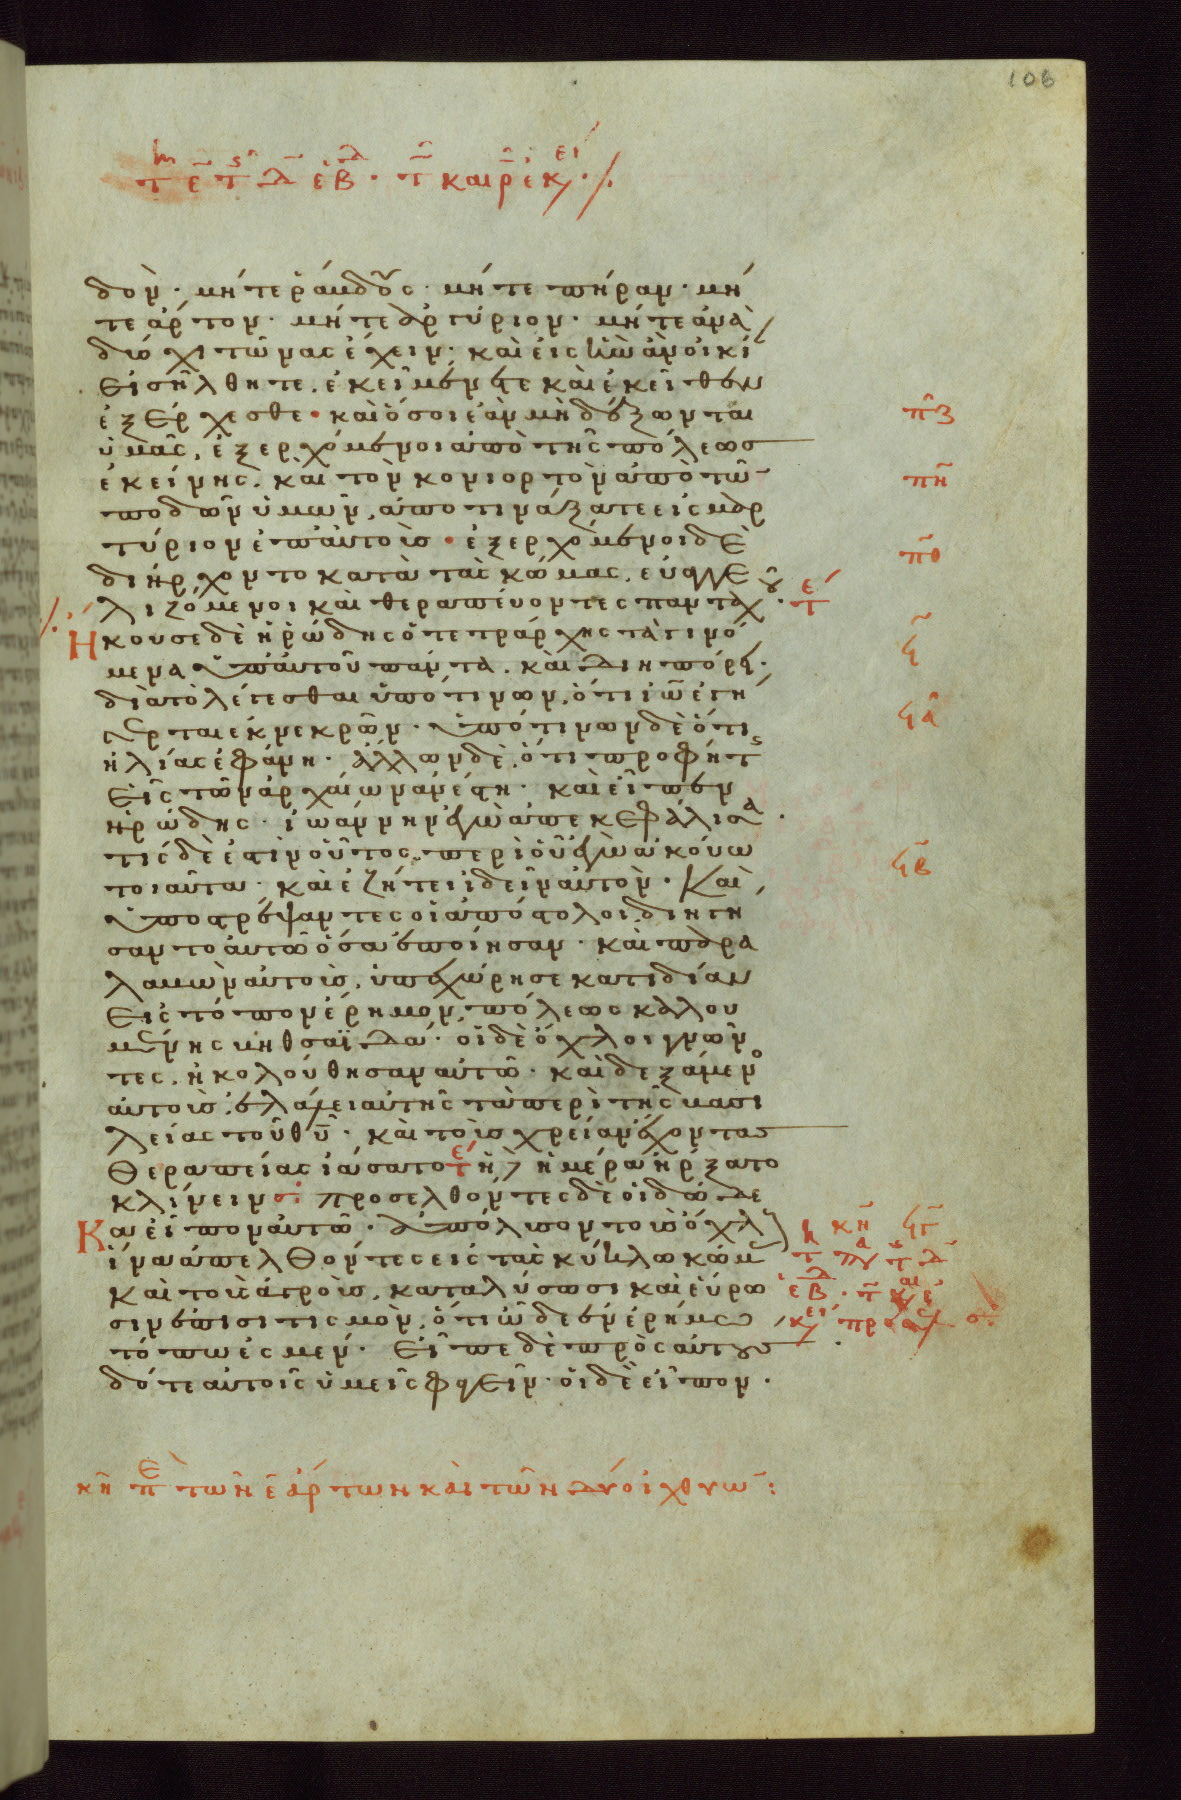 106
δον· μήτε ῥάβδους· μήτε πήραν· μή
τε ἄρτον· μήτε ἀργύριον· μήτε ἀνὰ
δύο χιτῶνας ἔχειν· καὶ εἰς ἣν ἂν οἰκί
εἰσήλθητε, ἐκεῖ μένετε καὶ ἐκεῖθεν
ἐξέρχεσθε· καὶ ὅσοι ἐὰν μὴ δέξωνται
ὑμᾶς, ἐξερχόμενοι ἀπὸ τῆς πόλεως
ἐκείνης, καὶ τὸν κονιορτὸν ἀπὸ τῶ
ποδῶν ὑμῶν, ἀποτινάξατε εἰς μαρ
τύριον ἐπ αὐτοὺς· ἐξερχόμενοι δὲ
διήρχοντο κατὰ τὰς κώμας, εὐαγγε
λιζόμενοι καὶ θεραπεύοντες πανταχοῦ·
Ηκουσε δὲ ἡρώδης ὁ τετράρχης τὰ γινό
μενα ὑπ αὐτοῦ πάντα. καὶ διηπόρει·
διὰ τὸ λέγεσθαι ὑπό τινων, ὅτι ἰω ἐγή
γερται ἐκ νεκρῶν· ὑπό τινων δὲ ὅτι
ἠλίας ἐφάνη· ἄλλων δὲ, ὅτι προφήτης
εἷς τῶν ἀρχαίων ἀνέστη· καὶ εἶπεν
ἡρώδης· ἰωάννην ἐγὼ ἀπεκεφάλισα·
τίς δέ ἐστιν οὗτος, περὶ οὗ ἐγὼ ἀκούω
τοιαῦτα· καὶ ἐζήτει ἰδεῖν αὐτόν· Καὶ
ὑποστρέψαντες οἱ ἀπόστολοι, διηγή
σαντο αὐτῶ ὅσα ἐποίησαν· καὶ παρα
λαβὼν αὐτοὺς, ὑπεχώρησε κατιδίαν
εἰς τόπον ἔρημον, πόλεως καλου
μένης βηθσαϊδά· οἱ δὲ ὄχλοι γνόν
τες, ἠκολούθησαν αὐτῶ· καὶ δεξάμενο
αὐτοὺς, ἐλάλει αὐτοῖς τὰ περὶ τῆς βασι
λείας τοῦ θυ· καὶ τοὺς χρείαν ἔχοντας
θεραπείας ἰάσατο ἡ δὲ ἡμέρα ἤρξατο
κλίνειν προσελθόντες δὲ οἱ δώδε
Κα εἶπον αὐτῶ· ἀπόλυσον τοὺς ὄχλους
ἵνα ἀπελθόντες εἰς τὰς κύκλω κώμ
καὶ τοὺς ἀγροὺς, καταλύσωσι καὶ εὕρω
σιν ἐπισιτισμόν, ὅτι ὧδε ἐν ἐρήμω
τόπω ἐσμέν· εἶπε δὲ πρὸς αὐτους
δότε αὐτοῖς ὑμεῖς φαγεῖν· οἱ δὲ εἶπον·
πζ
πη
πθ
ϟ
ϟα
ϟβ
κη ϟγ
κη πε τῶν ε ἄρτων καὶ τῶν δύο ἰχθύω: